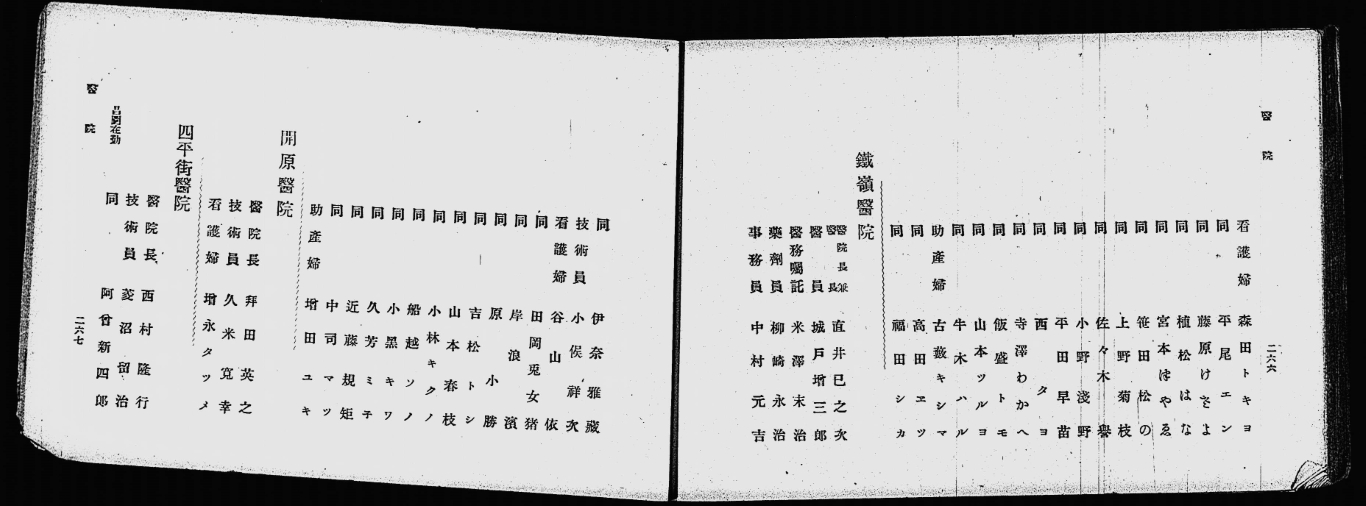 醫院
二六六
看護婦 森田トキヨ
同 平尾エン
同 藤原けさよ
同 植松はな
同 宮本はやゑ
同 笹田松の
同 上野菊枝
同 佐々木譽
同 小野淺野
同 平田早苗
同 西タヨ
同 寺澤わかへ
同 飯盛トモ
同 山本ツルヨ
同 牛木ハル
助產婦 古藪キシマ
同 高田ヱツ
同 福田シカ
鐵嶺醫院
醫院長兼醫長 直井巳之次
醫員 城戸增三郎
醫務囑託 米澤末治
藥劑員 柳崎永治
事務員 中村元吉
同 伊奈雅藏
技術員 小俣祥次
看護婦 谷山依
同 田岡兎女猪
同 岸浪濱
同 原小勝
同 吉松トシ
同 山本春枝
同 小林キクノ
同 船越ソノ
同 小黑キワ
同 久芳ミチ
同 近藤規矩
同 中司マツ
助產婦 增田ユキ
開原醫院
醫院長 拜田英之
技術員 久米寬幸
看護婦 增永タツメ
四平街醫院
醫院長 西村隆行
技術員 菱沼留治
同 阿曾新四郎
昌劉在勤
醫院
二六七